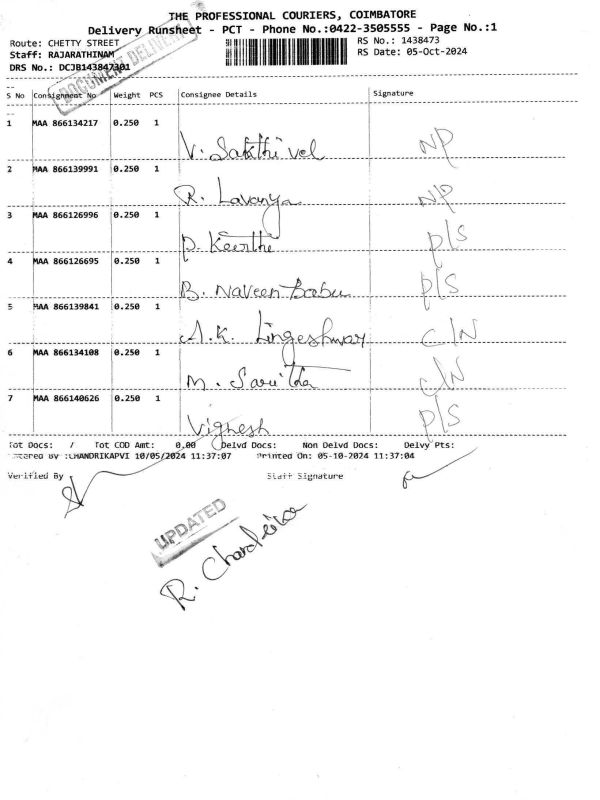 THE PROFESSIONAL COURIERS, COIMBATORE
Delivery Runsheet - PCT - Phone No.:0422-3505555 - Page No.:1
Route: CHETTY STREET
RS No.: 1438473
Staff: RAJARATHINAM
RS Date: 05-Oct-2024
DRS No.: DCJB143847301
DOCUMENT DELIVERY
S No Consignment No Weight PCS Consignee Details Signature
1 MAA 866134217 0.250 1 V. Sakthivel NP
2 MAA 866139991 0.250 1 R. Lavanya NP
3 MAA 866126996 0.250 1 P. Keerthi P/S
4 MAA 866126695 0.250 1 B. Naveen Babu P/S
5 MAA 866139841 0.250 1 A.K. Lingeshwar C/N
6 MAA 866134108 0.250 1 M. Saritha C/N
7 MAA 866140626 0.250 1 Vignesh P/S
Tot Docs: / Tot COD Amt: 0.00 Delvd Docs: Non Delvd Docs: Delvy Pts:
Entered By :CHANDRIKAPVI 10/05/2024 11:37:07 Printed On: 05-10-2024 11:37:04
Verified By Staff Signature
UPDATED
R. Chandrika